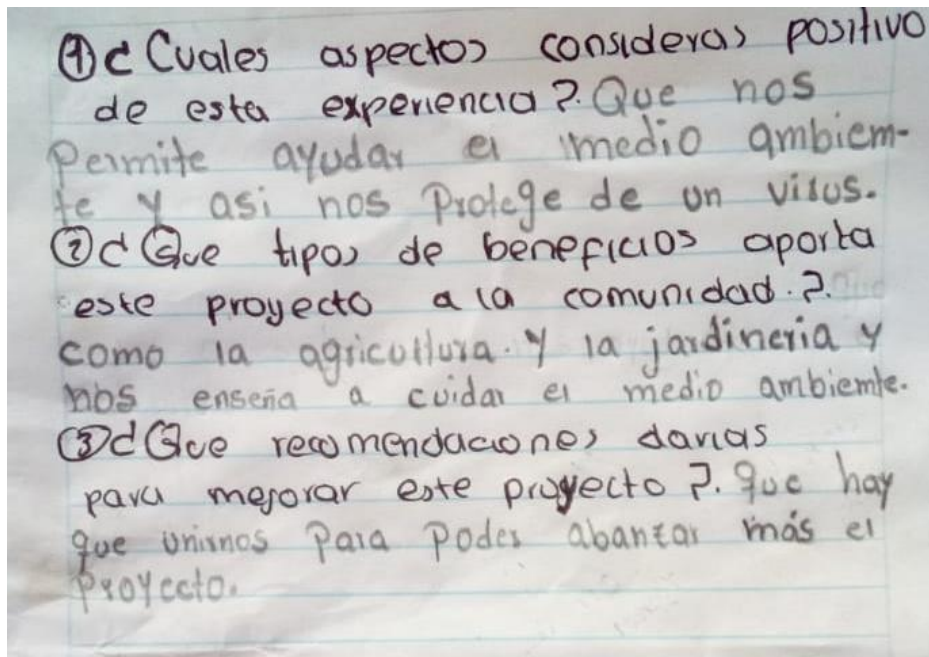 ①¿Cuales aspectos consideras positivo
de esta experiencia?. Que nos
Permite ayudar el medio ambiem-
te y asi nos Protege de un virus.
②¿Que tipos de beneficios aporta
este proyecto a la comunidad.?. Que
como la agricultura. y la jardineria y
nos enseña a cuidar el medio ambiemte.
③¿Que recomendaciones darias
para mejorar este proyecto?. que hay
que unirnos Para Poder abanzar más el
Proyecto.